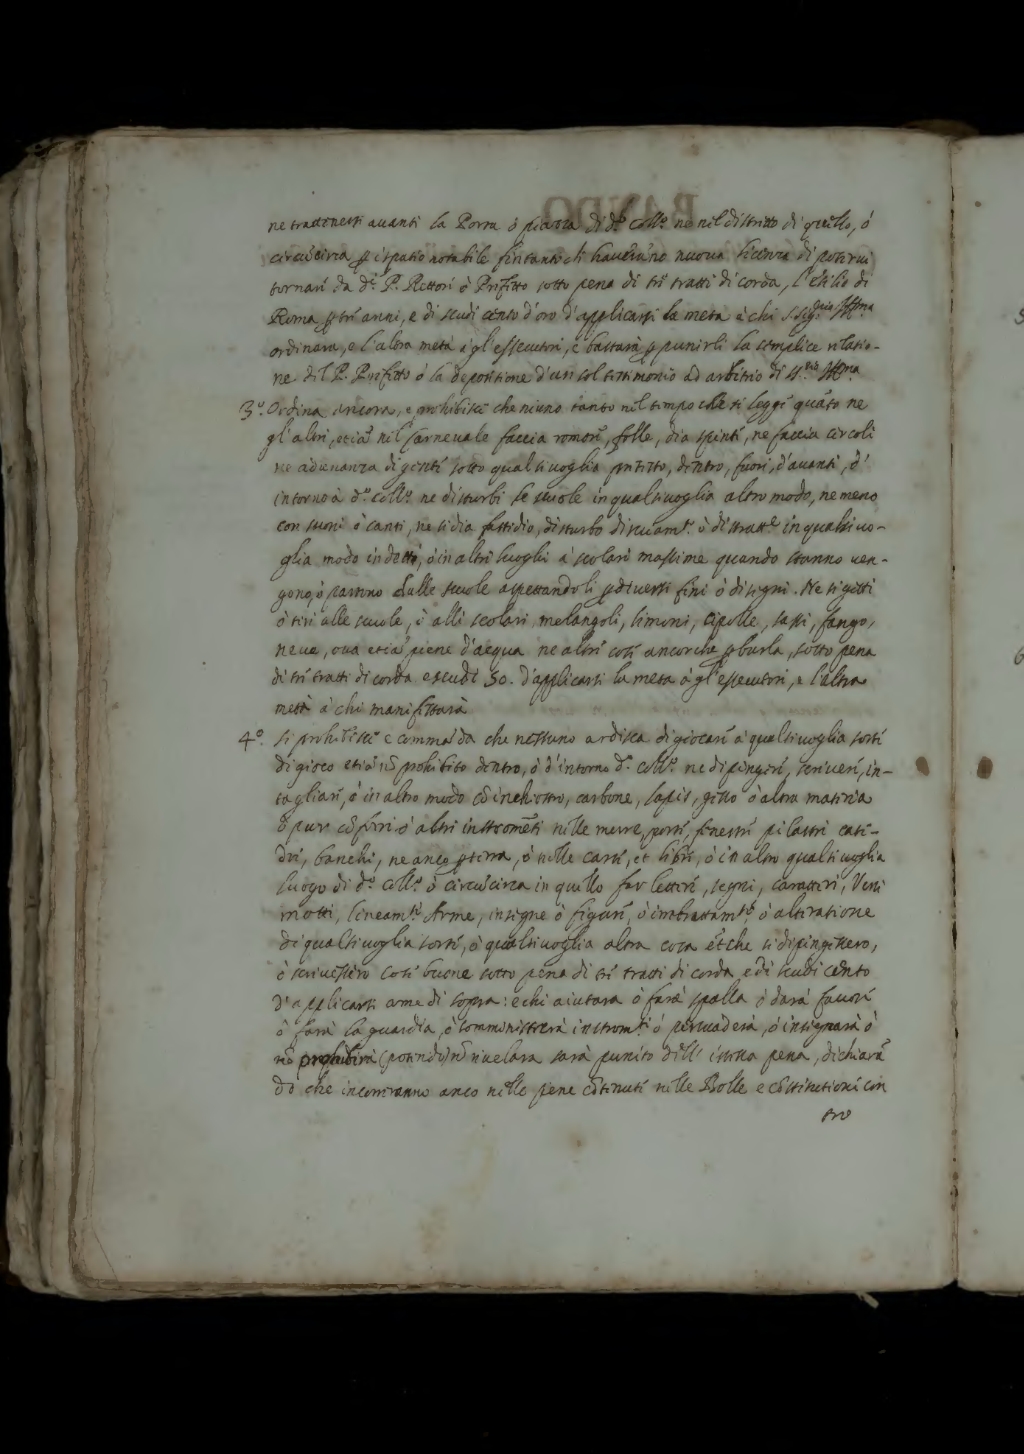 ne trattenersi auanti la Porta ò piazza di d.º Coll.º ne nel distritto di quello, ó
circu'circa p ispatio notabile fin tanto ch haueran'no nuoua licenza di poterui
tornare da d.º P. Rettore ò Prefetto sotto pena di tre tratti di corda, l'esilio di
Roma p tre anni, e di scudi cento d'oro d'applicarsi la metà à chi S. Sig.ria Ill.ma
ordinara, e l'altra metà à gl'essecutori, e bastarà p punirli la semplice relatio-
ne del P. Prefetto ó la depositione d'un sol testimonio ad arbitrio di S. S.ria Ill.ma
3.º Ordina ancora, e prohibisce che niuno tanto nel tempo che si legge qua'to ne
gl'altri, etia' nel Carneuale faccia romori, folle, dia spinte, ne faccia circoli
ne adunanza di genti sotto qual si uoglia pretesto, dentro, fuori, d'auanti, ò
intorno à d.º Coll.º ne disturbi le scuole in qual si uoglia altro modo, ne meno
con suoni ò canti, ne si dia fastidio, disturbo ò distratt.e in qualsiuo-
glia modo in detti, ò in altri luoghi à scolari massime quando stanno uen-
gono, ò partono dalle scuole aspettandoli p diuersi fini ò disegni. Ne si getti
ò tiri alle scuole, ò alli scolari melangoli, limoni, cipolle, sassi, fango,
neue, oua etia' piene d'acqua ne altre cose ancorche p burla, sotto pena
di tre tratti di corda e scudi 50. d'applicarsi la metà à gl'essecutori, e l'altra
metà à chi manifestarà
4.º Si prohibisce e comma'da che nessuno ardisca di giocare à qual si uoglia sorte
di gioco etia' no' prohibito dentro, ò d'intorno d.º Coll.º ne dipingere, scriuere, in-
tagliare, ò in altro modo co' inchiostro, carbone, lapis, gesso ò altra materia
ò pur co' ferri ò altri instrome'ti nelle mura, porte, fenestre pilastri cate-
dre, banchi, ne anco p terra, ò nelle carte, et libri, ò in altro qual si uoglia
luogo di d.º Coll.º ò circu'circa in quello far lettere, segni, caratteri, Versi
motti, lineam.ti Arme, insegne ò figure, ò imbrattam.to, ò alteratione
di qual si uoglia sorte, ò qual si uoglia altra cosa et che si dipingessero,
ò scriuessero cose buone sotto pena di tre tratti di corda, e di scudi cento
d'applicarsi come di sopra: e chi aiutara ò farà spalla ò darà fauore
ò farà la guardia, ò somministrerà instrom.ti ò persuaderà, ò insegnarà ò
no' prohibirà (potendo) no' riuelara sarà punito dell' istessa pena, dichiara'
do che incorreranno anco nelle pene co'tenute nelle Bolle e co'stitutioni con
tro